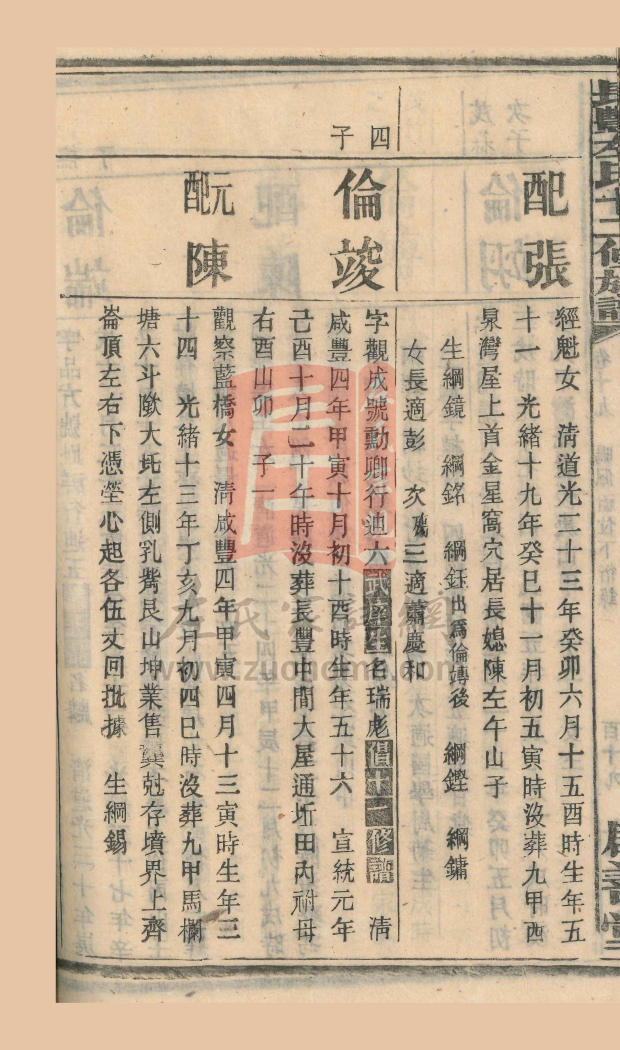 長豐左氏十二修族譜
配張
經魁女　清道光二十三年癸卯六月十五酉時生年五
十一　光緒十九年癸巳十一月初五寅時沒葬九甲西
泉灣屋上首金星窩穴居長媳陳左午山子
生綱鏡　綱銘　綱鈺出爲倫竱後　綱鏗　綱鏞
女長適彭　次殤三適蕭慶和
四子
倫竣
字觀成號勳卿行迪六武庠生名瑞彪倡十二修譜　清
咸豐四年甲寅十月初十酉時生年五十六　宣統元年
己酉十月二十午時沒葬長豐中間大屋通坵田內祔母
右酉山卯　子一
元配陳
觀察藍橋女　清咸豐四年甲寅四月十三寅時生年三
十四　光緒十三年丁亥九月初四巳時沒葬九甲馬欄
塘六斗墈大坵左側乳嘴艮山坤業售龔尅存墳界上齊
崙頂左右下憑塋心起各伍丈回批據　生綱錫
左氏宗親網
www.zuohome.com